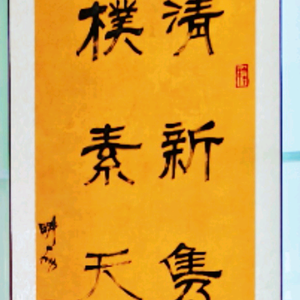 清新雋
樸素天